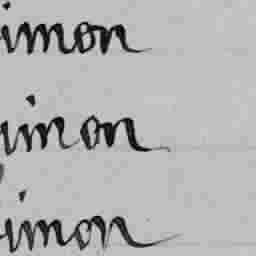 imon
imon
imon